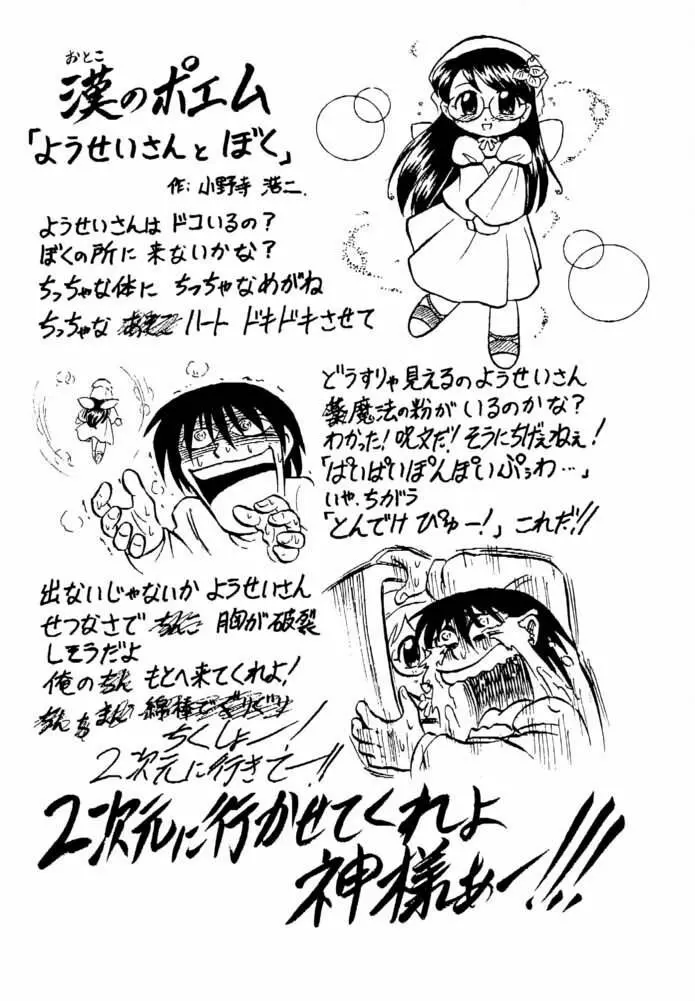 おとこ
漢のポエム
「ようせいさんと ぼく」
作: 小野寺 浩二.
ようせいさんは ドコいるの?
ぼくの所に 来ないかな?
ちっちゃな体に ちっちゃなめがね
ちっちゃな ハート ドキドキさせて
どうすりゃ見えるの ようせいさん
魔法の粉が いるのかな?
わかった! 呪文だ! そうにちげぇねぇ!
「ぱいぱいぽんぽいぷぅわ…」
いや、ちがう
「とんでけ ぴゅー!」 これだ!!
出ないじゃないか ようせいさん
せつなさで 胸が破裂
しそうだよ
俺の もとへ来てくれよ!
綿棒で
ちくしょー!
2次元に行きてー!!
2次元に行かせてくれよ
神様ぁー!!!